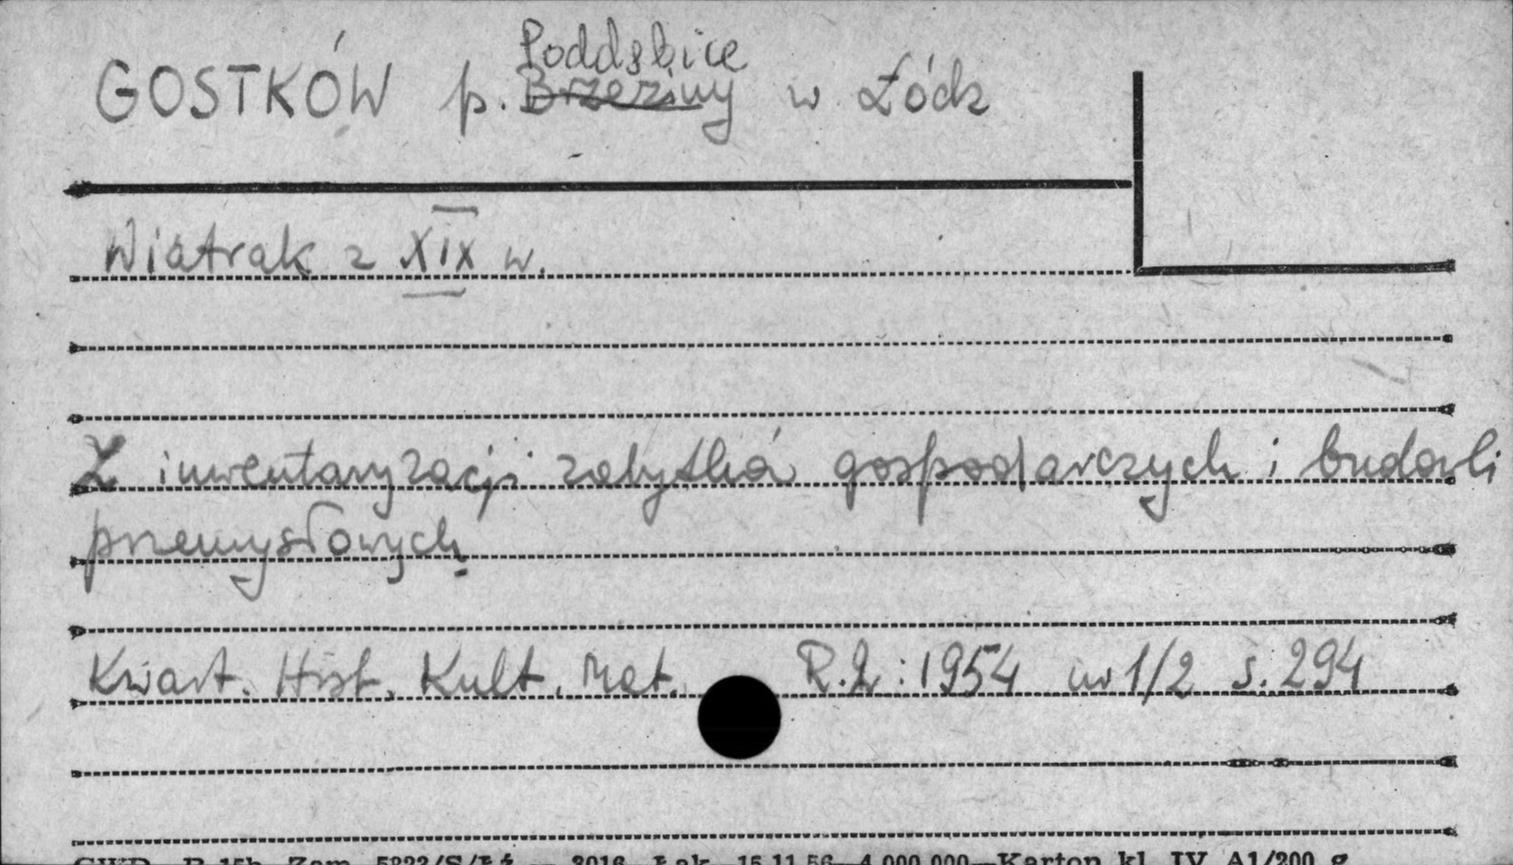 Poddębice
GOSTKÓW p. Brzeziny w Łódź
Wiatrak z XIX w.
Z inwentaryzacji zabytków gospodarczych i budowli
przemysłowych
Kwart. Hist. Kult. Mat. R.2: 1954 nr 1/2 s. 294
Zam. 5822/S/Łż — 3016 Łak. 15.11.56—4.000.000—Karton kl. IV A1/200 g